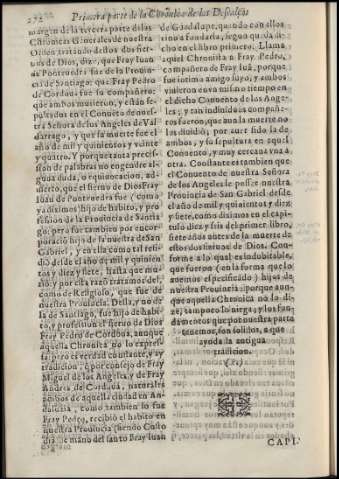 272 Primera parte de la Chronica de los Descalços
margen de la tercera parte de las
Chronicas Generales de nuestra
Orden tratando de estos dos sier-
uos de Dios, dize en la Prouin-
cia de Santiago: que Fray Pedro
de Cordoua fue su compañero:
que ambos murieron, y están se-
pultados en el Conuento de nues-
tra Señora de los Angeles de Val
darrago, y que su muerte fue el
año de mil y quinientos y veinte
y quatro. Y porque tanta precis-
sion de palabras no engendre al-
guna duda, o equiuocacion, ad-
uierto, que el sieruo de Dios Fray
Iuan de Puotroendra fue (como
ya diximos) hijo de habito, y pro-
fession de la Prouincia de Santia
go: pero fue tambien por encor-
poracion hijo de la nuestra de San
Gabriel, y en ella como tal resi-
dió desde el año de mil y quinien
tos y diez y siete, hasta que mu-
rió: y por esta razó tratamos del,
como de Religioso, que fue de
nuestra Prouincia. Della, y no de
la de Santiago, fue hijo de habi-
to, y profession el sieruo de Dios
Fray Pedro de Cordoua, aunque
aquella Chronica no lo expres-
sa: pero es verdad constante, y ay
tradicion: q̃ por consejo de Fray
Miguel de los Angeles, y de Fray
Andres de Cordoua, naturales
ambos de aquella ciudad en An-
daluzia, como tambien lo fue
Fray Pedro, recibió el habito en
nuestra Prouincia (siendo Custo
dia) de mano del santo Fray Iuan
de Guadalupe, quando con ellos
vino a fundarla, segun queda di-
cho en el libro primero. Llama
aquel Chronista a Fray Pedro,
compañero de Fray Iuã, porque
fue intimo amigo suyo, y ambos
viuieron en vn mismo tiempo en
el dicho Conuento de los Ange-
les; y tan indiuiduos compañe-
ros fueron, que aun la muerte no
los diuidió; por auer sido la de
ambos, y su sepultura en aquel
Conuento, y muy cercana vna a
otra. Constante es tambien que
el Conuento de nuestra Señora
de los Angeles le possee nuestra
Prouincia de San Gabriel desde
el año de mil y quinientos y diez
y siete, como diximos en el capi-
tulo diez y seis del primer libro,
siete años antes de la muerte de
estos dos sieruos de Dios. Con-
forme a lo qual es indubitable,
que fueron (en la forma que lo
auemos especificado) hijos de
nuestra Prouincia: porque aun-
que aquella Chronica no lo di-
ze, tampoco lo niega; y los fun-
damentos que por nuestra parte
tenemos, son solidos, a que
ayuda la antigua
tradicion.
(.?.)
CAPI.